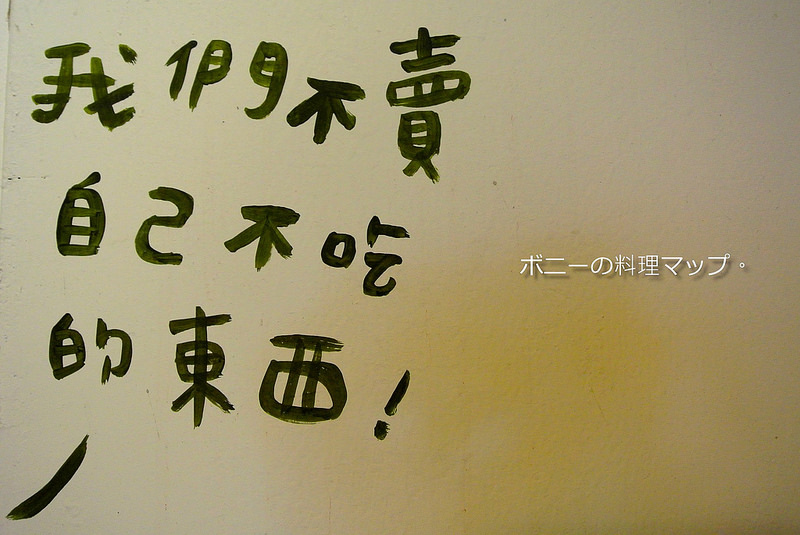 我們不賣
自己不吃
的東西!
ボニーの料理マップ。